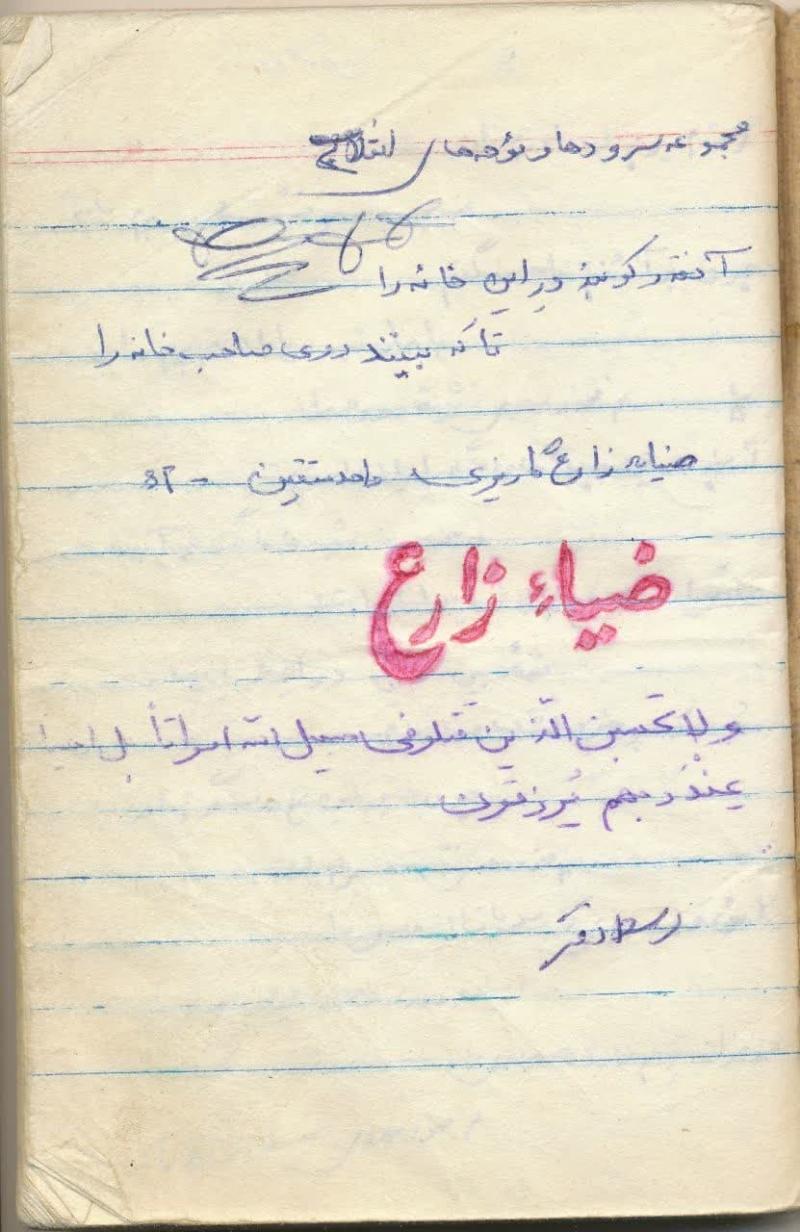 مجموعه سرودها و نوحه‌های انقلابی
آنقدر کوبند در این خانه را
تا که بینند روی صاحب خانه را
ضیاء زارع
ضیاء زارع
و لا تحسبن الّذین قتلو فی سبیل الله امواتاً بل احیا
عِنْدَ ربهم یُرزقون